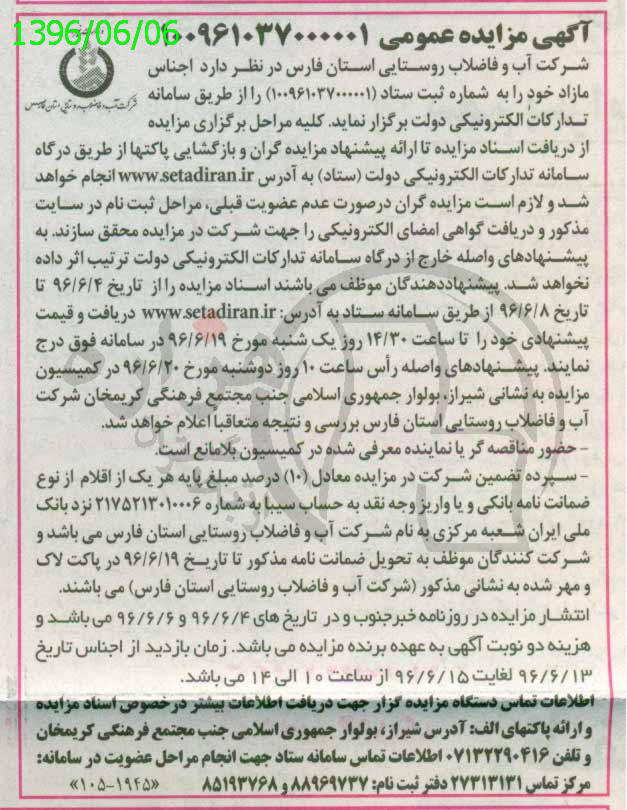 1396/06/06
آگهی مزایده عمومی ۱۰۰۹۶۱۰۳۷۰۰۰۰۰۱
شرکت آب و فاضلاب روستایی استان فارس در نظر دارد اجناس
مازاد خود را به شماره ثبت ستاد (۱۰۰۹۶۱۰۳۷۰۰۰۰۰۱) را از طریق سامانه
تدارکات الکترونیکی دولت برگزار نماید. کلیه مراحل برگزاری مزایده
از دریافت اسناد مزایده تا ارائه پیشنهاد مزایده گران و بازگشایی پاکتها از طریق درگاه
سامانه تدارکات الکترونیکی دولت (ستاد) به آدرس www.setadiran.ir انجام خواهد
شد و لازم است مزایده گران درصورت عدم عضویت قبلی، مراحل ثبت نام در سایت
مذکور و دریافت گواهی امضای الکترونیکی را جهت شرکت در مزایده محقق سازند. به
پیشنهادهای واصله خارج از درگاه سامانه تدارکات الکترونیکی دولت ترتیب اثر داده
نخواهد شد. پیشنهاددهندگان موظف می باشند اسناد مزایده را از تاریخ ۹۶/۶/۴ تا
تاریخ ۹۶/۶/۸ از طریق سامانه ستاد به آدرس: www.setadiran.ir دریافت و قیمت
پیشنهادی خود را تا ساعت ۱۴/۳۰ روز یک شنبه مورخ ۹۶/۶/۱۹ در سامانه فوق درج
نمایند. پیشنهادهای واصله رأس ساعت ۱۰ روز دوشنبه مورخ ۹۶/۶/۲۰ در کمیسیون
مزایده به نشانی شیراز، بولوار جمهوری اسلامی جنب مجتمع فرهنگی کریمخان شرکت
آب و فاضلاب روستایی استان فارس بررسی و نتیجه متعاقبا اعلام خواهد شد.
- حضور مناقصه گر یا نماینده معرفی شده در کمیسیون بلامانع است.
- سپرده تضمین شرکت در مزایده معادل (۱۰) درصد مبلغ پایه هر یک از اقلام از نوع
ضمانت نامه بانکی و یا واریز وجه نقد به حساب سیبا به شماره ۲۱۷۵۲۱۳۰۱۰۰۰۶ نزد بانک
ملی ایران شعبه مرکزی به نام شرکت آب و فاضلاب روستایی استان فارس می باشد و
شرکت کنندگان موظف به تحویل ضمانت نامه مذکور تا تاریخ ۹۶/۶/۱۹ در پاکت لاک
و مهر شده به نشانی مذکور (شرکت آب و فاضلاب روستایی استان فارس) می باشند.
انتشار مزایده در روزنامه خبرجنوب و در تاریخ های ۹۶/۶/۴ و ۹۶/۶/۶ می باشد و
هزینه دو نوبت آگهی به عهده برنده مزایده می باشد. زمان بازدید از اجناس تاریخ
۹۶/۶/۱۳ لغایت ۹۶/۶/۱۵ از ساعت ۱۰ الی ۱۴ می باشد.
اطلاعات تماس دستگاه مزایده گزار جهت دریافت اطلاعات بیشتر در خصوص اسناد مزایده
و ارائه پاکتهای الف: آدرس شیراز، بولوار جمهوری اسلامی جنب مجتمع فرهنگی کریمخان
و تلفن ۰۷۱۳۲۲۹۰۴۱۶ اطلاعات تماس سامانه ستاد جهت انجام مراحل عضویت در سامانه:
مرکز تماس ۲۷۳۱۳۱۳۱ دفتر ثبت نام: ۸۸۹۶۹۷۳۷ و ۸۵۱۹۳۷۶۸ «۱۰۵-۱۹۴۵»